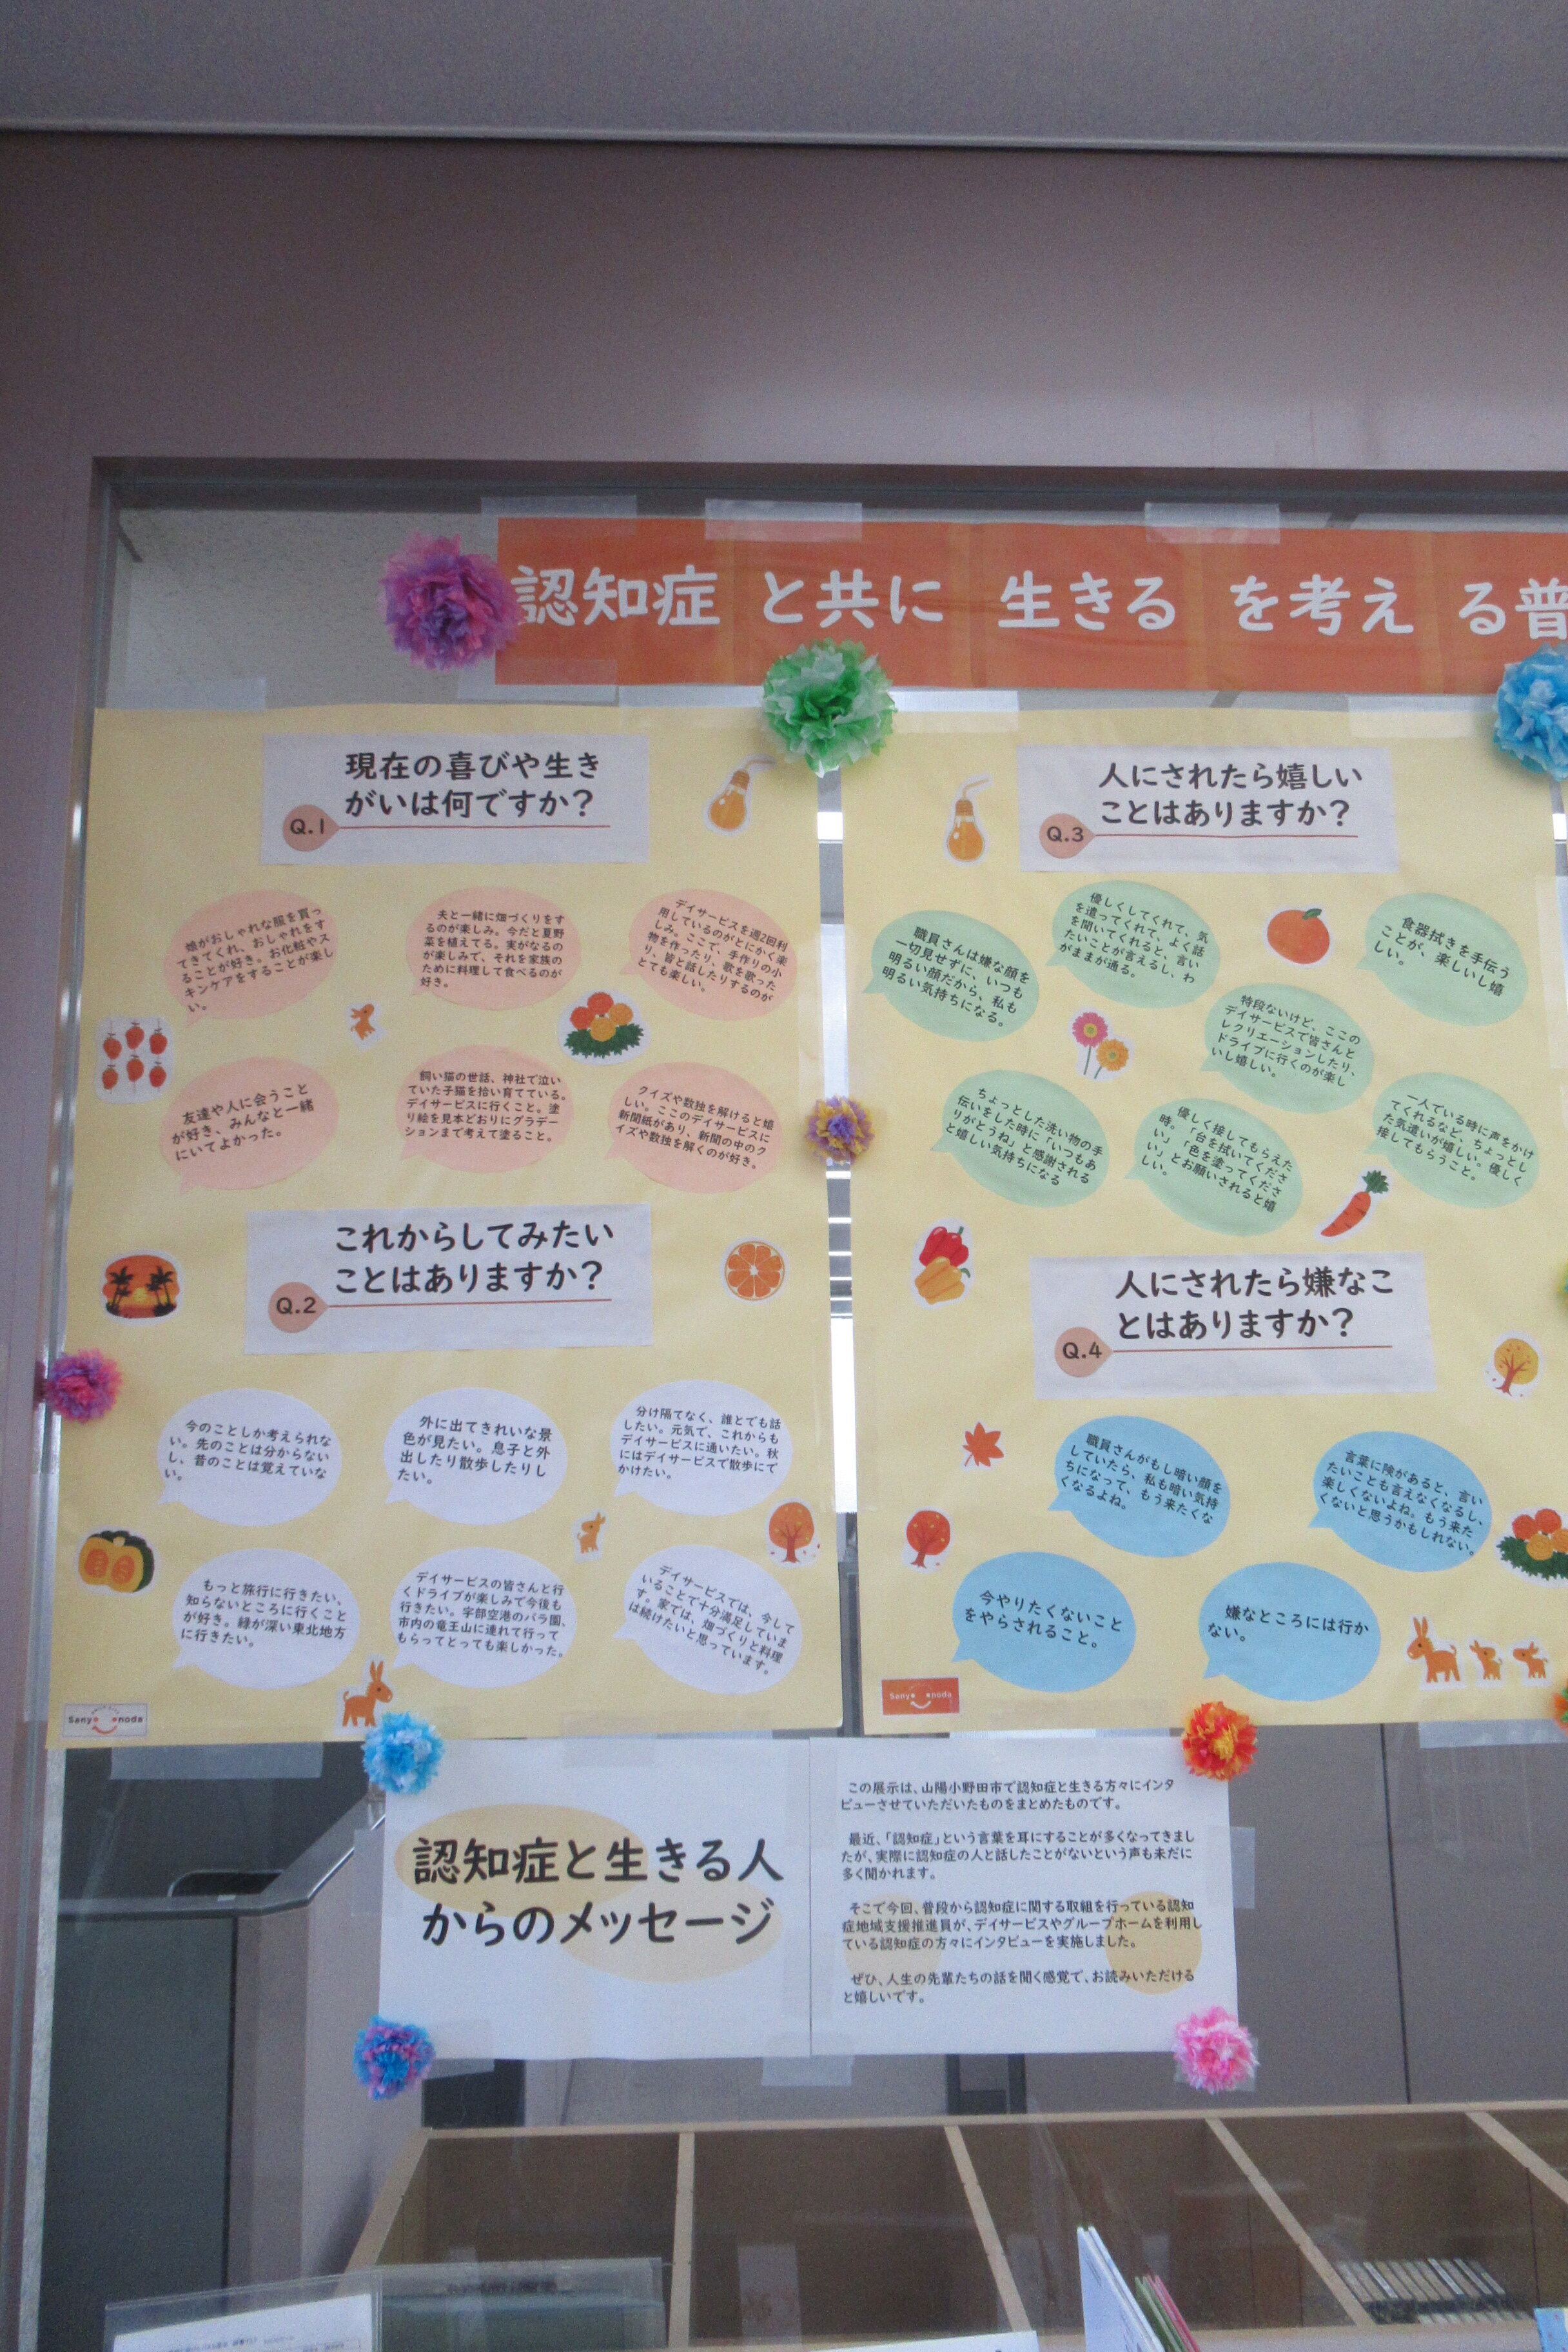 認知症 と共に 生きる を考え る普
現在の喜びや生き
がいは何ですか?
Q.1
娘がおしゃれな服を買っ
てきてくれ、おしゃれをす
ることが好き。お化粧やス
キンケアをすることが楽し
い。
夫と一緒に畑づくりをす
るのが楽しみ。今だと夏野
菜を植えてる。実がなるの
が楽しみで、それを家族の
ために料理して食べるのが
好き。
デイサービスを週2回利
用しているのがとにかく楽
しみ。ここで、手作りの小
物を作ったり、歌を歌った
り、皆と話したりするのが
とても楽しい。
友達や人に会うこと
が好き、みんなと一緒
にいてよかった。
飼い猫の世話、神社で泣い
ていた子猫を拾い育てている。
デイサービスに行くこと。塗
り絵を見本どおりにグラデー
ションまで考えて塗ること。
クイズや数独を解けると嬉
しい。ここのデイサービスに
新聞紙があり、新聞の中のク
イズや数独を解くのが好き。
これからしてみたい
ことはありますか?
Q.2
今のことしか考えられな
い。先のことは分からない
し、昔のことは覚えていな
い。
外に出てきれいな景
色が見たい。息子と外
出したり散歩したりし
たい。
分け隔てなく、誰とでも話
したい。元気で、これからも
デイサービスに通いたい。秋
にはデイサービスで散歩にで
かけたい。
もっと旅行に行きたい、
知らないところに行くこと
が好き。緑が深い東北地方
に行きたい。
デイサービスの皆さんと行
くドライブが楽しみで今後も
行きたい。宇部空港のバラ園、
市内の竜王山に連れて行って
もらってとっても楽しかった。
デイサービスでは、今して
いることで十分満足していま
す。家では、畑づくりと料理
は続けたいと思っています。
Sany noda
人にされたら嬉しい
ことはありますか?
Q.3
職員さんは嫌な顔を
一切見せずに、いつも
明るい顔だから、私も
明るい気持ちになる。
優しくしてくれて、気
を遣ってくれて、よく話
を聞いてくれると、言い
たいことが言えるし、わ
がままが通る。
食器拭きを手伝う
ことが、楽しいし嬉
しい。
特段ないけど、ここの
デイサービスで皆さんと
レクリエーションしたり、
ドライブに行くのが楽し
いし嬉しい。
ちょっとした洗い物の手
伝いをした時に「いつもあ
りがとうね」と感謝される
と嬉しい気持ちになる
優しく接してもらえた
時。「台を拭いてくださ
い」「色を塗ってくださ
い」とお願いされると嬉
しい。
一人でいる時に声をかけ
てくれるなど、ちょっとし
た気遣いが嬉しい。優しく
接してもらうこと。
人にされたら嫌なこ
とはありますか?
Q.4
職員さんがもし暗い顔を
していたら、私も暗い気持
ちになって、もう来たくな
くなるよね。
言葉に険があると、言い
たいことも言えなくなるし、
楽しくないよね。もう来た
くないと思うかもしれない。
今やりたくないこと
をやらされること。
嫌なところには行か
ない。
Sany noda
認知症と生きる人
からのメッセージ
この展示は、山陽小野田市で認知症と生きる方々にインタ
ビューさせていただいたものをまとめたものです。
最近、「認知症」という言葉を耳にすることが多くなってきまし
たが、実際に認知症の人と話したことがないという声も未だに
多く聞かれます。
そこで今回、普段から認知症に関する取組を行っている認知
症地域支援推進員が、デイサービスやグループホームを利用し
ている認知症の方々にインタビューを実施しました。
ぜひ、人生の先輩たちの話を聞く感覚で、お読みいただける
と嬉しいです。